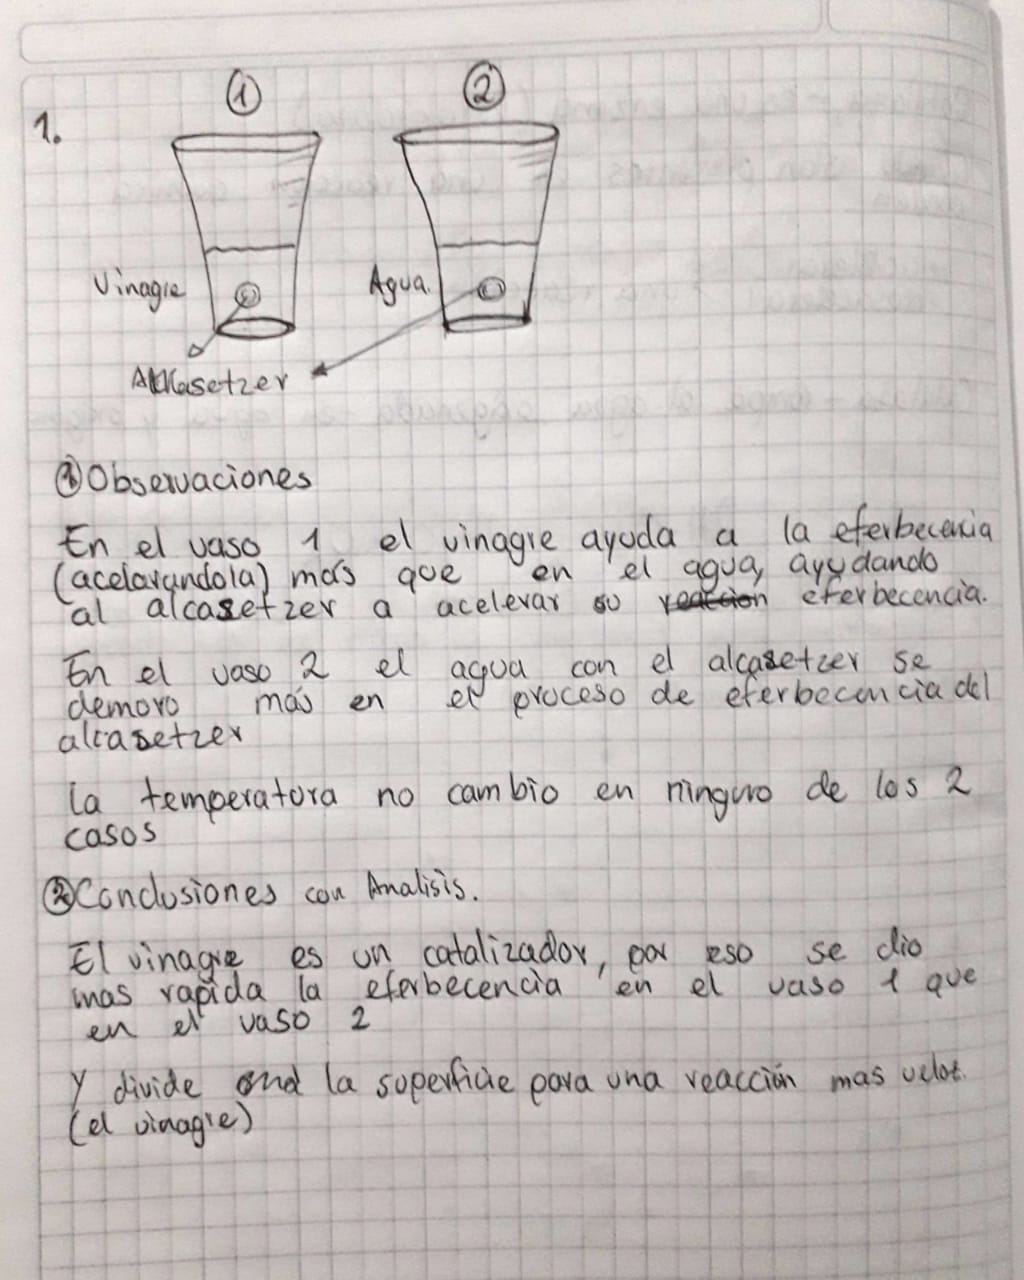 1.
① ②
Vinagre
Agua.
Alkasetzer
① Observaciones
En el vaso 1 el vinagre ayuda a la eferbecencia
(acelarandola) más que en el agua, ayudando
al alcasetzer a acelerar su reaccion eferbecencia.
En el vaso 2 el agua con el alcasetzer se
demoro más en el proceso de eferbecencia del
alcasetzer
la temperatura no cambio en ninguno de los 2
casos
② Conclusiones con Analisis.
El vinagre es un catalizador, por eso se dio
mas rapida la eferbecencia en el vaso 1 que
en el vaso 2
Y divide la superficie para una reacción mas veloz.
(el vinagre)